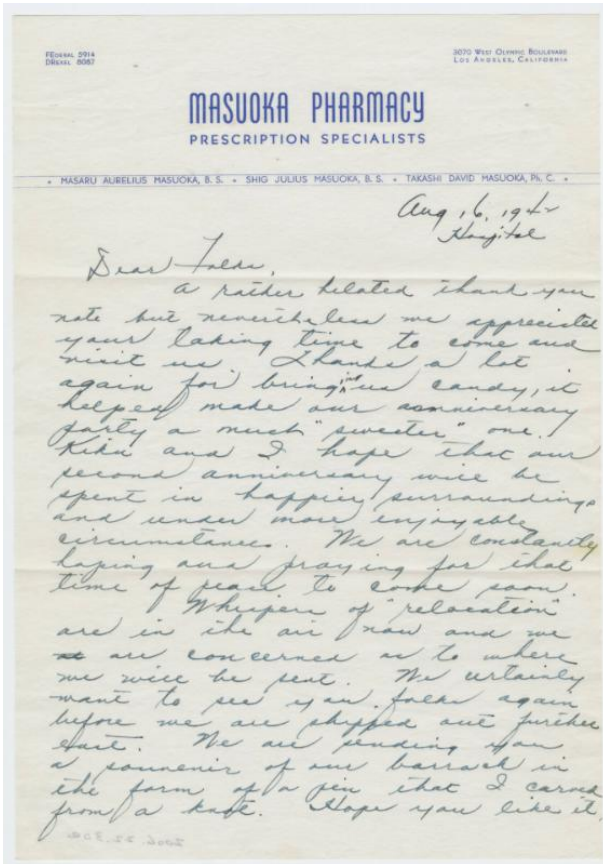 FEDERAL 5914
DREXEL 8087
3070 WEST OLYMPIC BOULEVARD
LOS ANGELES, CALIFORNIA
MASUOKA PHARMACY
PRESCRIPTION SPECIALISTS
• MASARU AURELIUS MASUOKA, B. S. • SHIG JULIUS MASUOKA, B. S. • TAKASHI DAVID MASUOKA, Ph. C. •
Aug 16, 1942
Hospital
Dear Folks,
A rather belated thank you
note but nevertheless we appreciated
your taking time to come and
visit us. Thanks a lot
again for bringing us candy, it
helped make our anniversary
party a much "sweeter" one.
Kiku and I hope that our
second anniversary will be
spent in happier surroundings
and under more enjoyable
circumstances. We are constantly
hoping and praying for that
time of peace to come soon.
Whispers of "relocation"
are in the air now and we
are concerned as to where
we will be sent. We certainly
want to see you folks again
before we are shipped out further
east. We are sending you
a souvenir of our barrack in
the form of a pin that I carved
from a knot. Hope you like it,
2006.22.30a